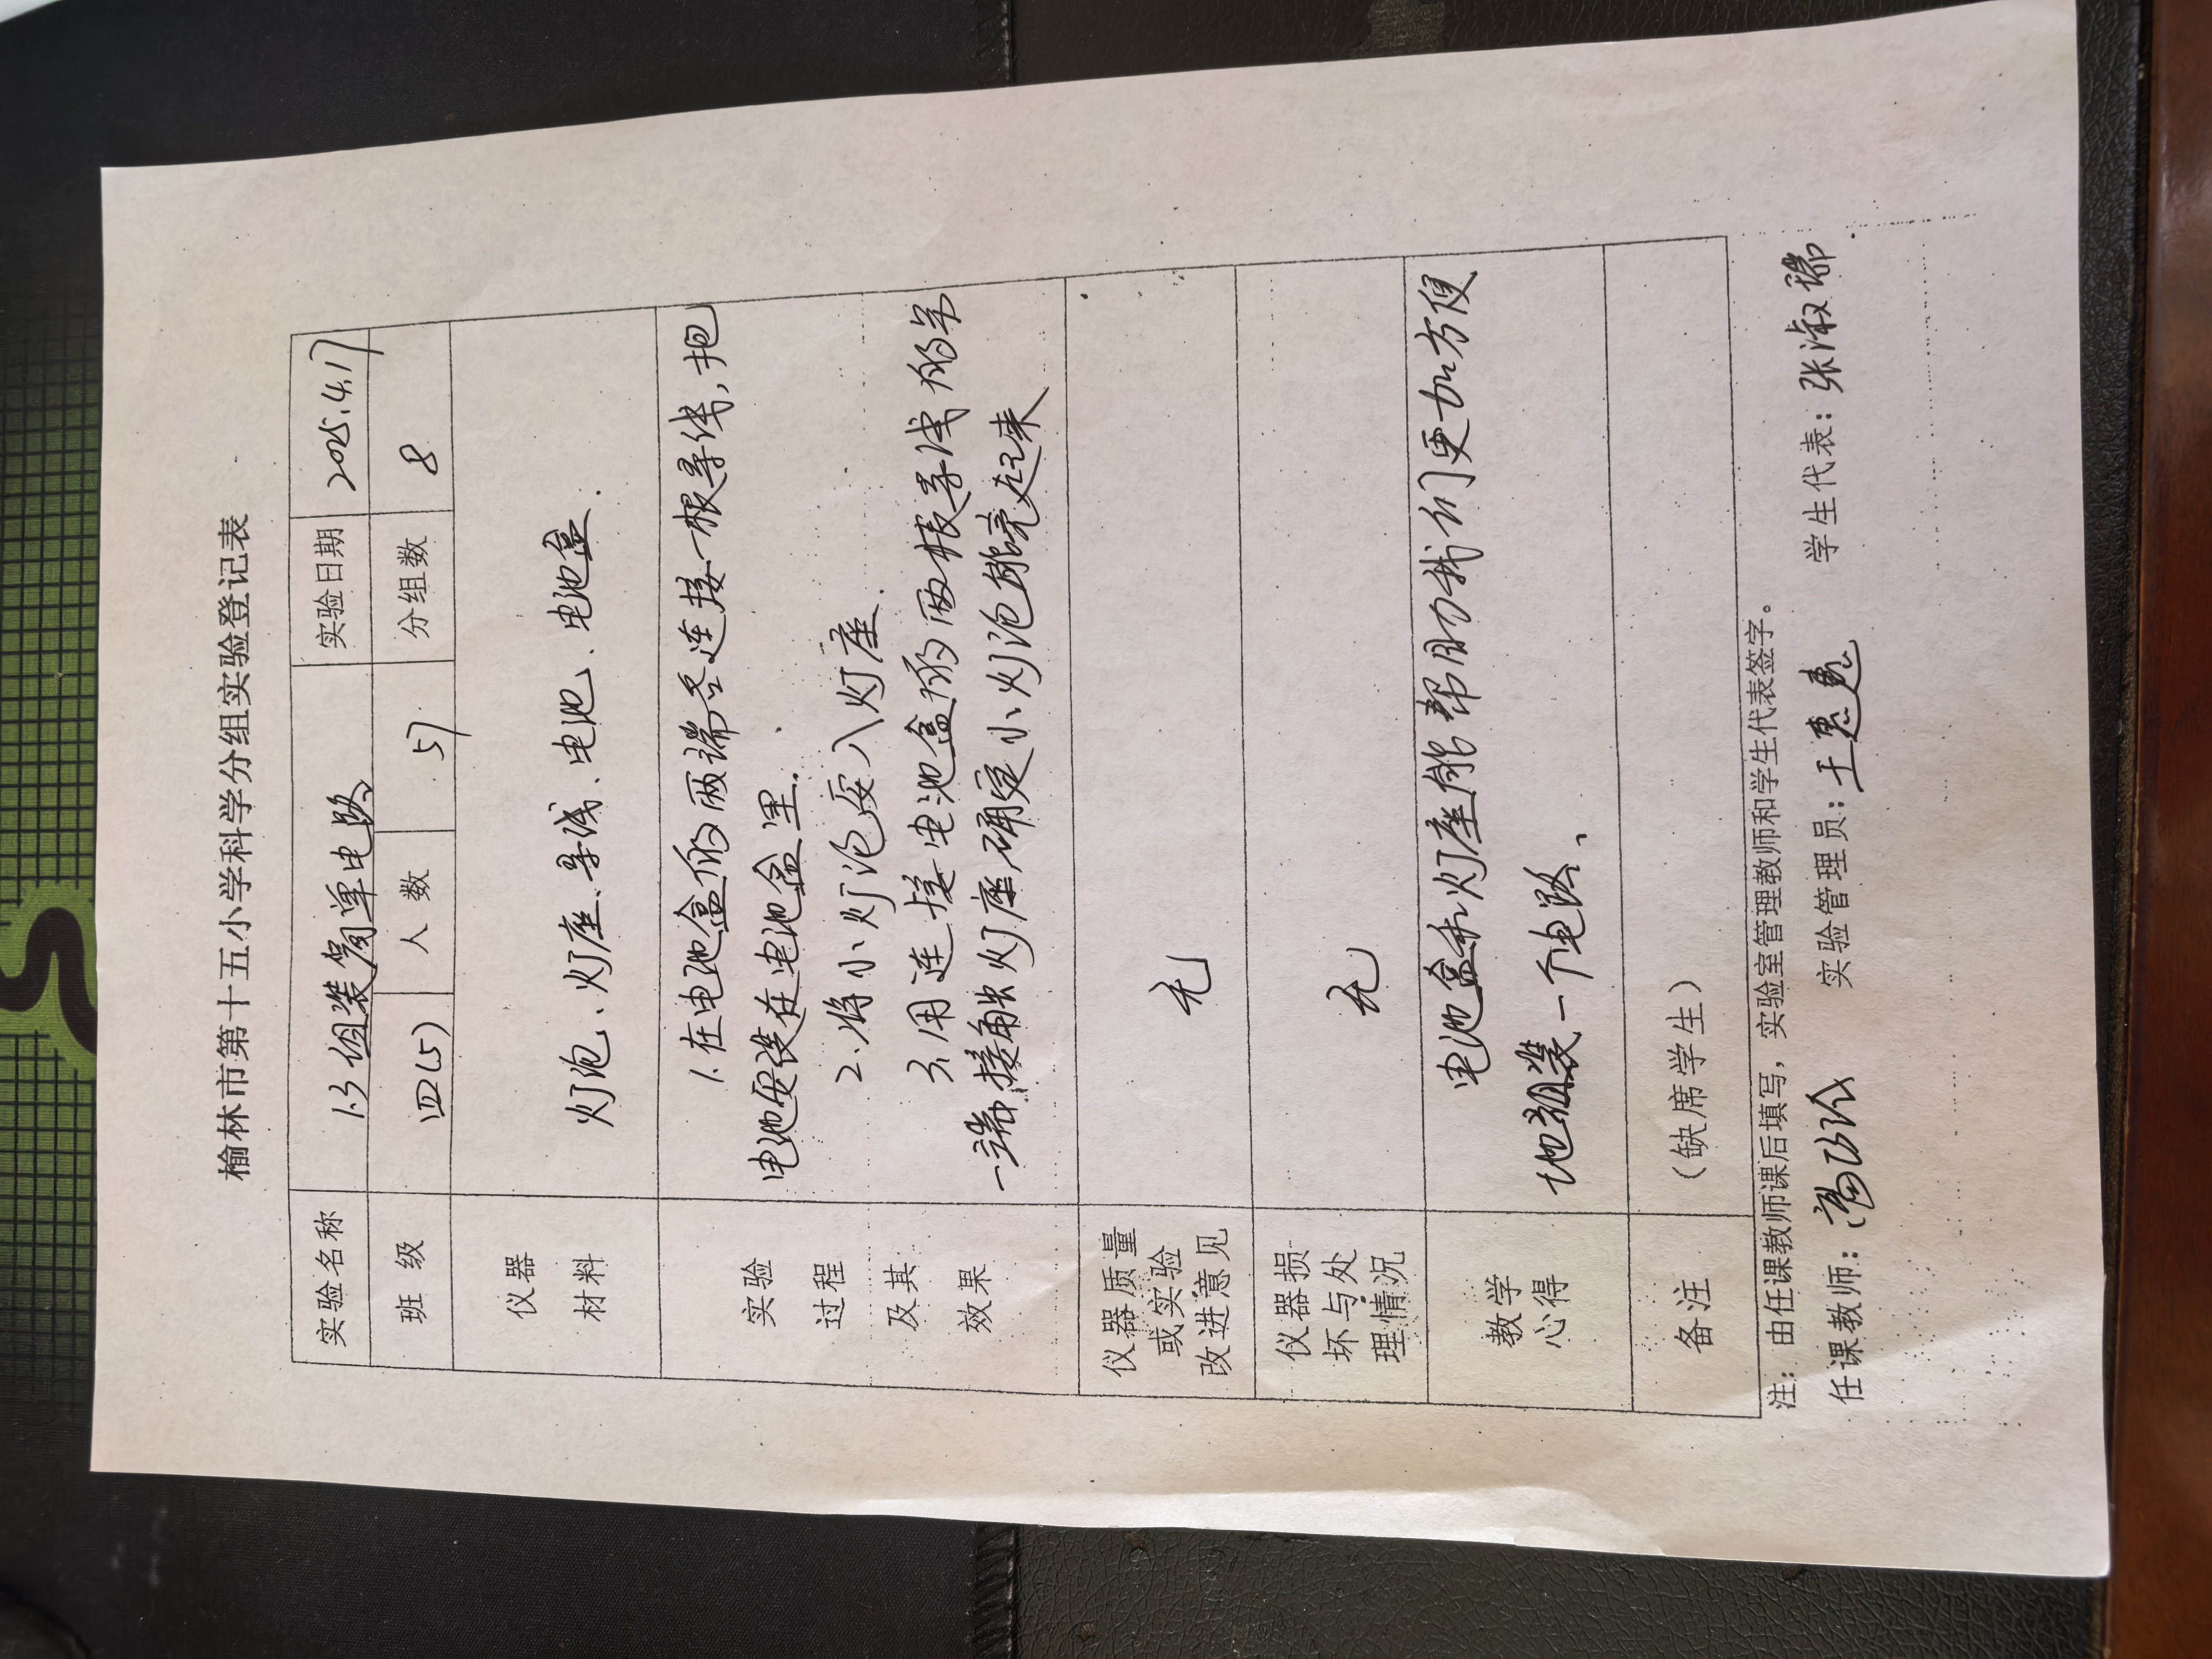 榆林市第十五小学科学分组实验登记表
实验名称 1.3组装简单电路 实验日期 2025.4.17
班级 四(5) 人数 57 分组数 8
仪器
材料
灯泡、灯座、导线、电池、电池盒.
实验
过程
及其
效果
1.在电池盒的两端各连接一根导线,把
电池安装在电池盒里.
2.将小灯泡安入灯座.
3.用连接电池盒的两根导线的另
一端接触灯座,确定小灯泡能亮起来
仪器质量
或实验
改进意见
无
仪器损
坏与处
理情况
无
教学
心得
电池盒和灯座能帮助我们更加方便
地组装一个电路、
备注 (缺席学生)
注: 由任课教师课后填写,实验室管理教师和学生代表签字。
任课教师: 实验管理员: 王惠惠 学生代表: 张淑瑞